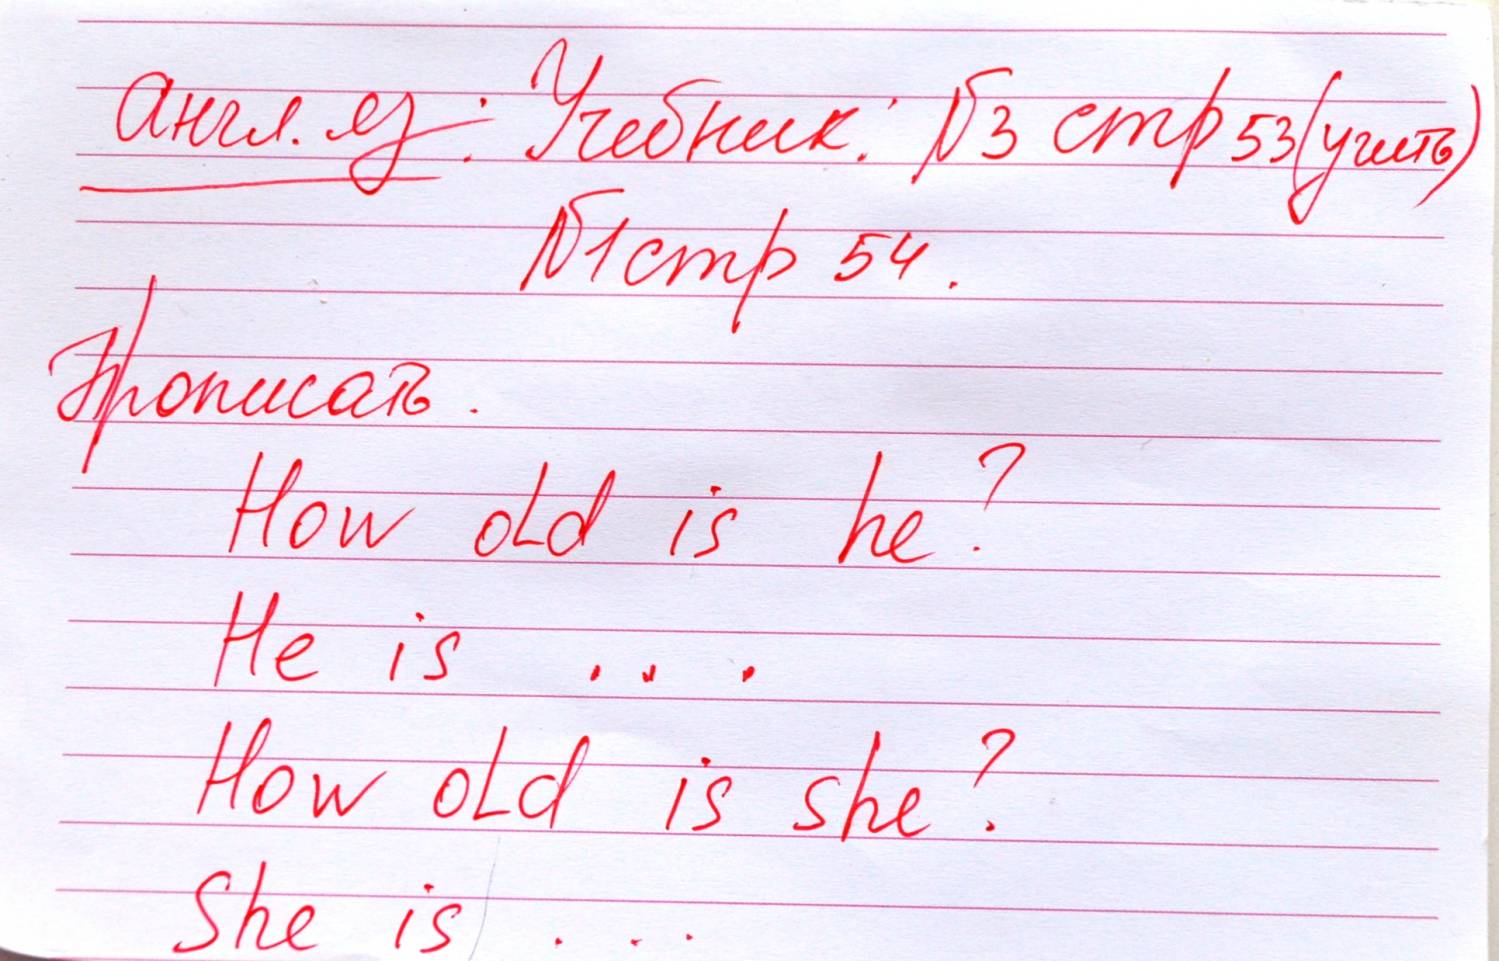 Англ. яз: Учебник: №3 стр 53 (учить)
№1 стр 54.
Прописать.
How old is he?
He is ...
How old is she?
She is ...